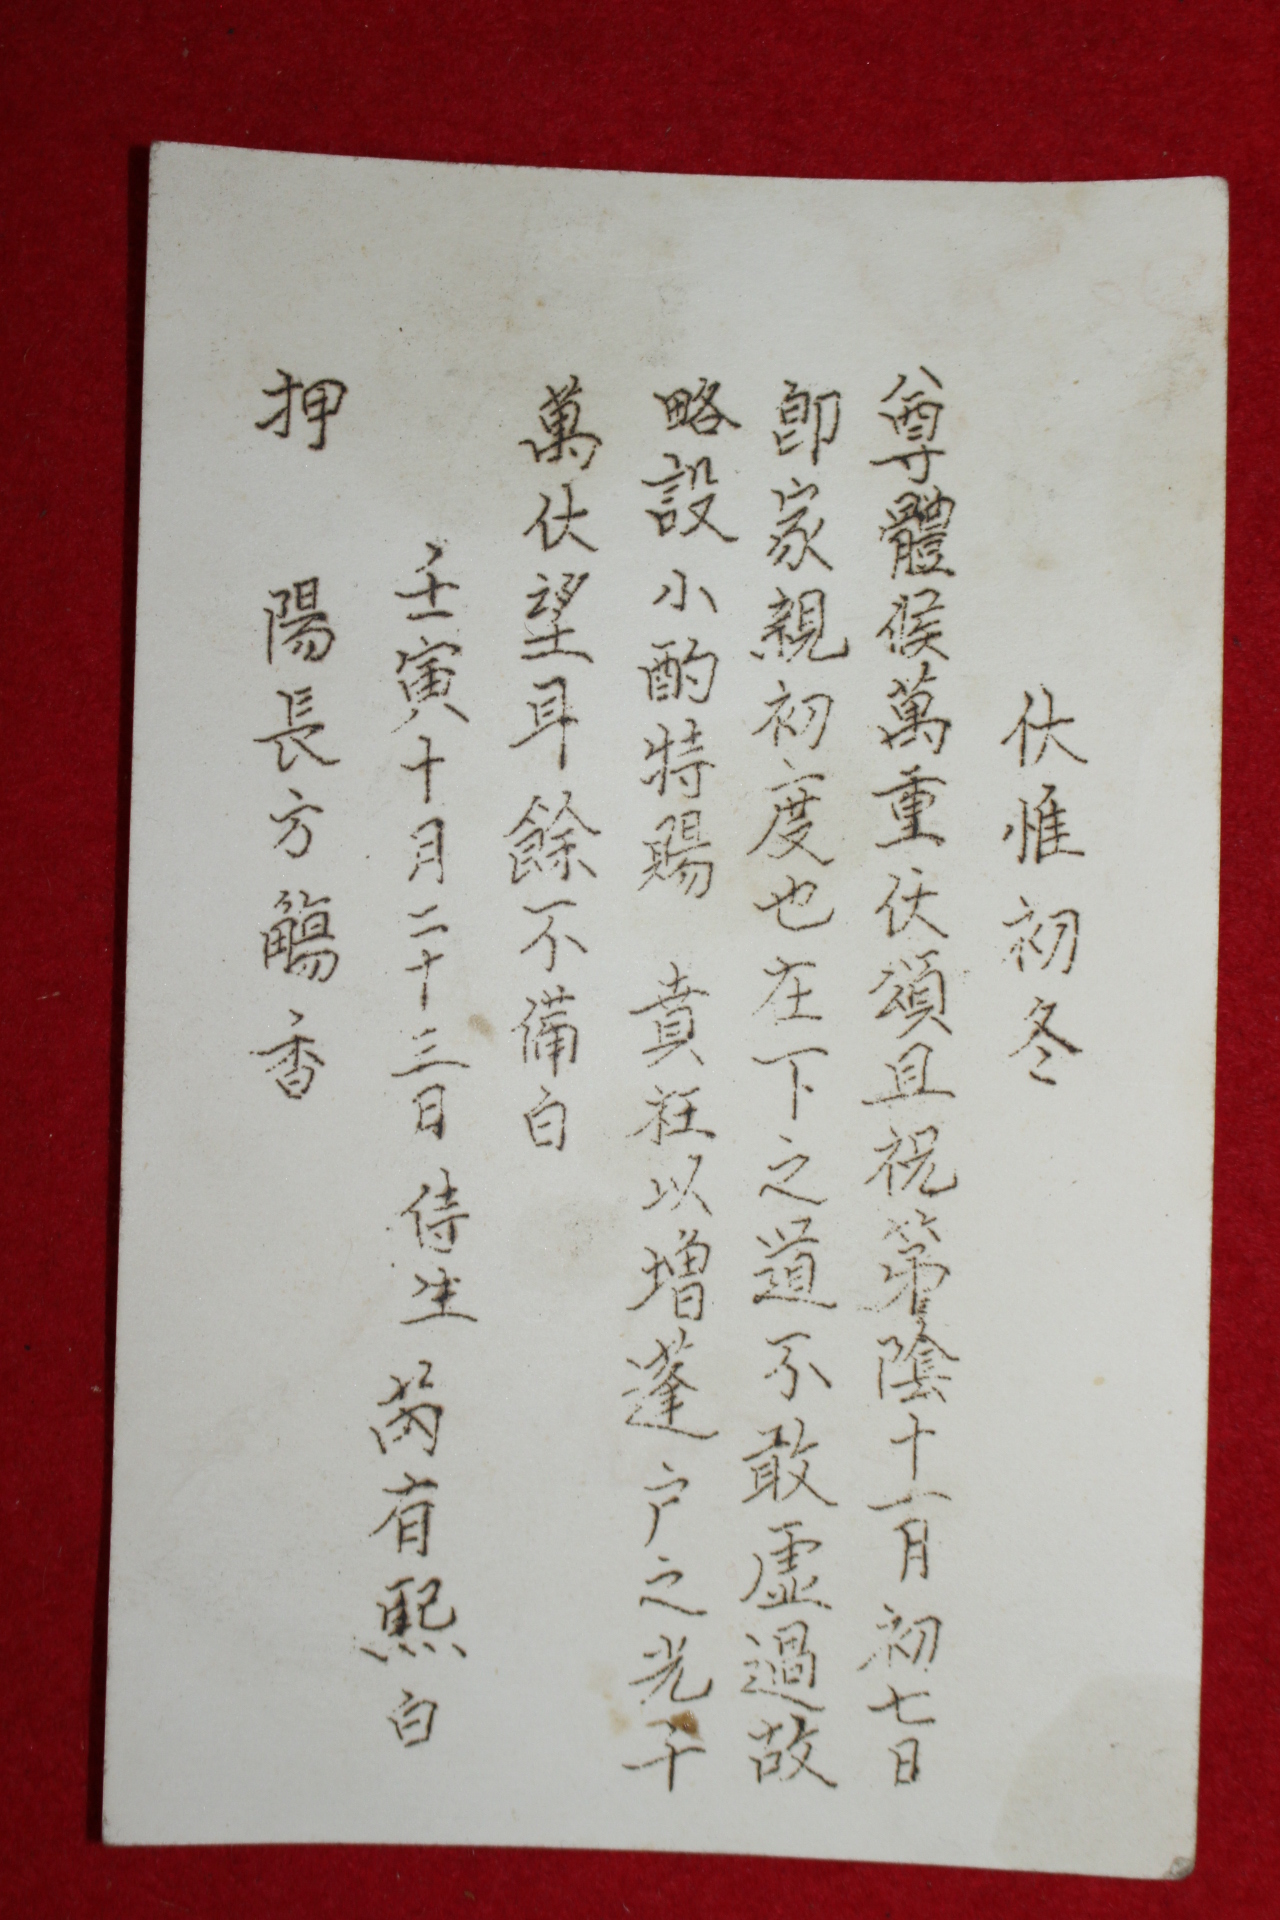 伏惟初冬
尊體候萬重伏頌且祝第陰十一月初七日
卽家親初度也在下之道不敢虛過故
略設小酌特賜　賁枉以增蓬户之光千
萬伏望耳餘不備白
壬寅十月二十三日侍生芮有熙白
押　陽長方觴香